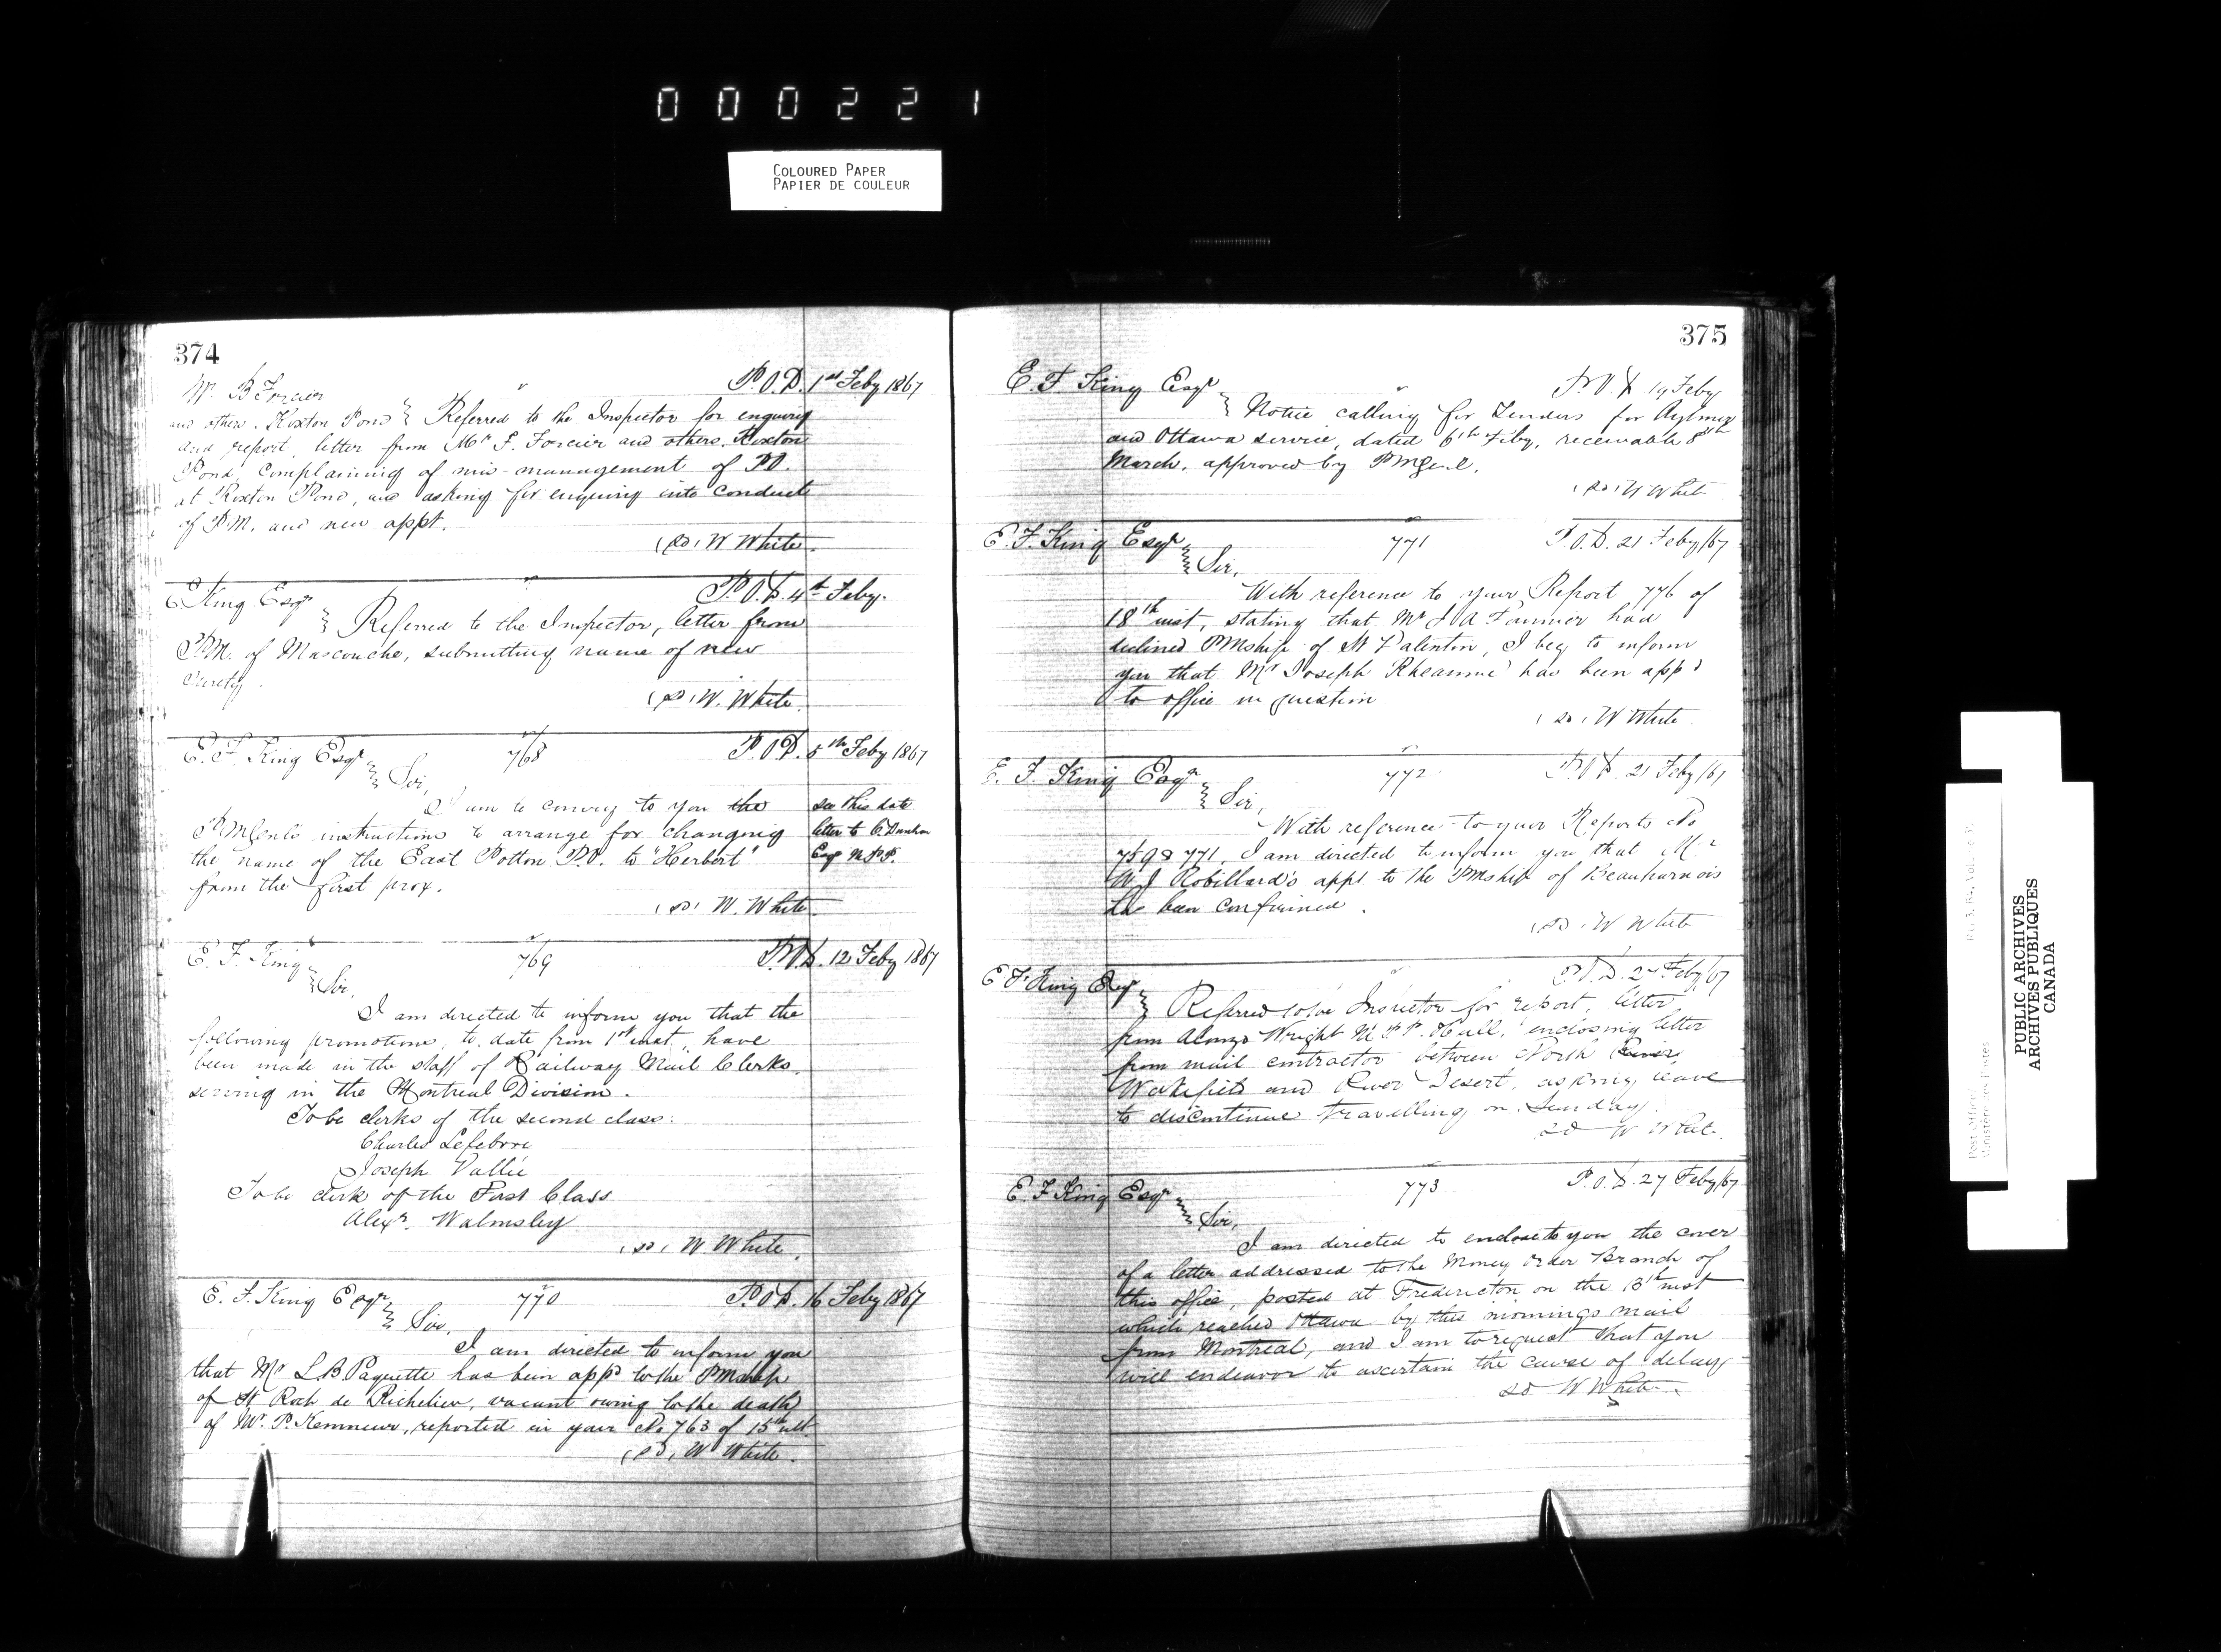 000221
COLOURED PAPER
PAPIER DE COULEUR
374
P.O.D. 1st Feby 1867
Mr B Forcier
and others. Roxton Pond } Referred to the Inspector for enquiry
and report, letter from Mr F. Forcier and others, Roxton
Pond, complaining of mis-management of P.O.
at Roxton Pond, and asking for enquiry into conduct
of P.M. and new appt.
(sd) W White.
P.O.D. 4th Feby.
E King Esqr
} Referred to the Inspector, letter from
P.M. of Mascouche, submitting name of new
surety.
(sd) W. White.
E. F. King Esqr 768 P.O.D. 5th Feby 1867
Sir,
I am to convey to you the
PMGenl's instructions to arrange for changing
the name of the East Potton P.O. to "Herbert"
from the first prox.
see this date
letter to C Dunkin
Esqr M.P.P.
(sd) W. White
E. F. King 769 P.O.D. 12 Feby 1867
Sir,
I am directed to inform you that the
following promotions, to date from 1st inst, have
been made in the staff of Railway Mail Clerks,
serving in the Montreal Division.
To be clerks of the second class:
Charles Lefebvre
Joseph Vallée
To be clerk of the First Class
Alexr. Walmsley
(sd) W. White.
E. F. King Esqr 770 P.O.D. 16 Feby 1867
Sir,
I am directed to inform you
that Mr L.B. Paquette has been appd to the PMship
of St Roch de Richelieu, vacant owing to the death
of Mr. P. , reported in your No. 763 of 15th ult.
(sd) W White.
375
E. F. King Esqr P.O.D. 19 Feby
} Notice calling for Tenders for Aylmer
and Ottawa service, dated 6th Feby, receivable 8th
March, approved by PMGenl.
(sd) W White
E. F. King Esqr 771 P.O.D. 21 Feby/67
Sir,
With reference to your Report 776 of
18th inst, stating that Mr J A Fournier had
declined PMship of St Valentin, I beg to inform
you that Mr Joseph Rheaume has been appd
to office in question
(sd) W White.
E. F. King Esqr 772 P.O.D. 21 Feby/67
Sir,
With reference to your Reports No
759 & 771, I am directed to inform you that Mr
W J Robillard's appt to the PMship of Beauharnois
has been confirmed.
(sd) W White
E F King Esqr P.O.D. Feby/67
} Referred to the Inspector for report, letter
from Alonzo Wright M.P.P. Hull, enclosing letter
from mail contractor between North
Wakefield and River Desert, asking leave
to discontinue travelling on Sunday.
sd W White.
E. F King Esqr 773 P.O.D. 27 Feby/67
Sir,
I am directed to enclose to you the cover
of a letter addressed to the Money Order Branch of
this office, posted at Fredericton on the 13th inst
which reached Ottawa by this mornings mail
from Montreal, and I am to request that you
will endeavor to ascertain the cause of delay
sd W White
PUBLIC ARCHIVES
ARCHIVES PUBLIQUES
CANADA